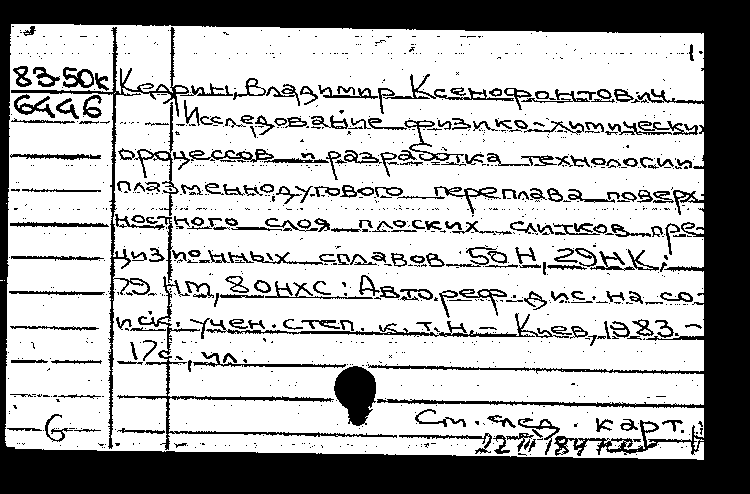 1.
83-50к Кедрин, Владимир Ксенофонтович.
6446 Исследование физико-химически
процессов и разработка технологии
плазменнодугового переплава поверх-
ностного слоя плоских слитков пре-
цизионных сплавов 50Н, 29НК,
79 НМ, 80НХС: Автореф. дис. на со-
иск. учен. степ. к.т.н. - Киев, 1983. -
17с., ил.
См. след. карт.
6
22 III 184